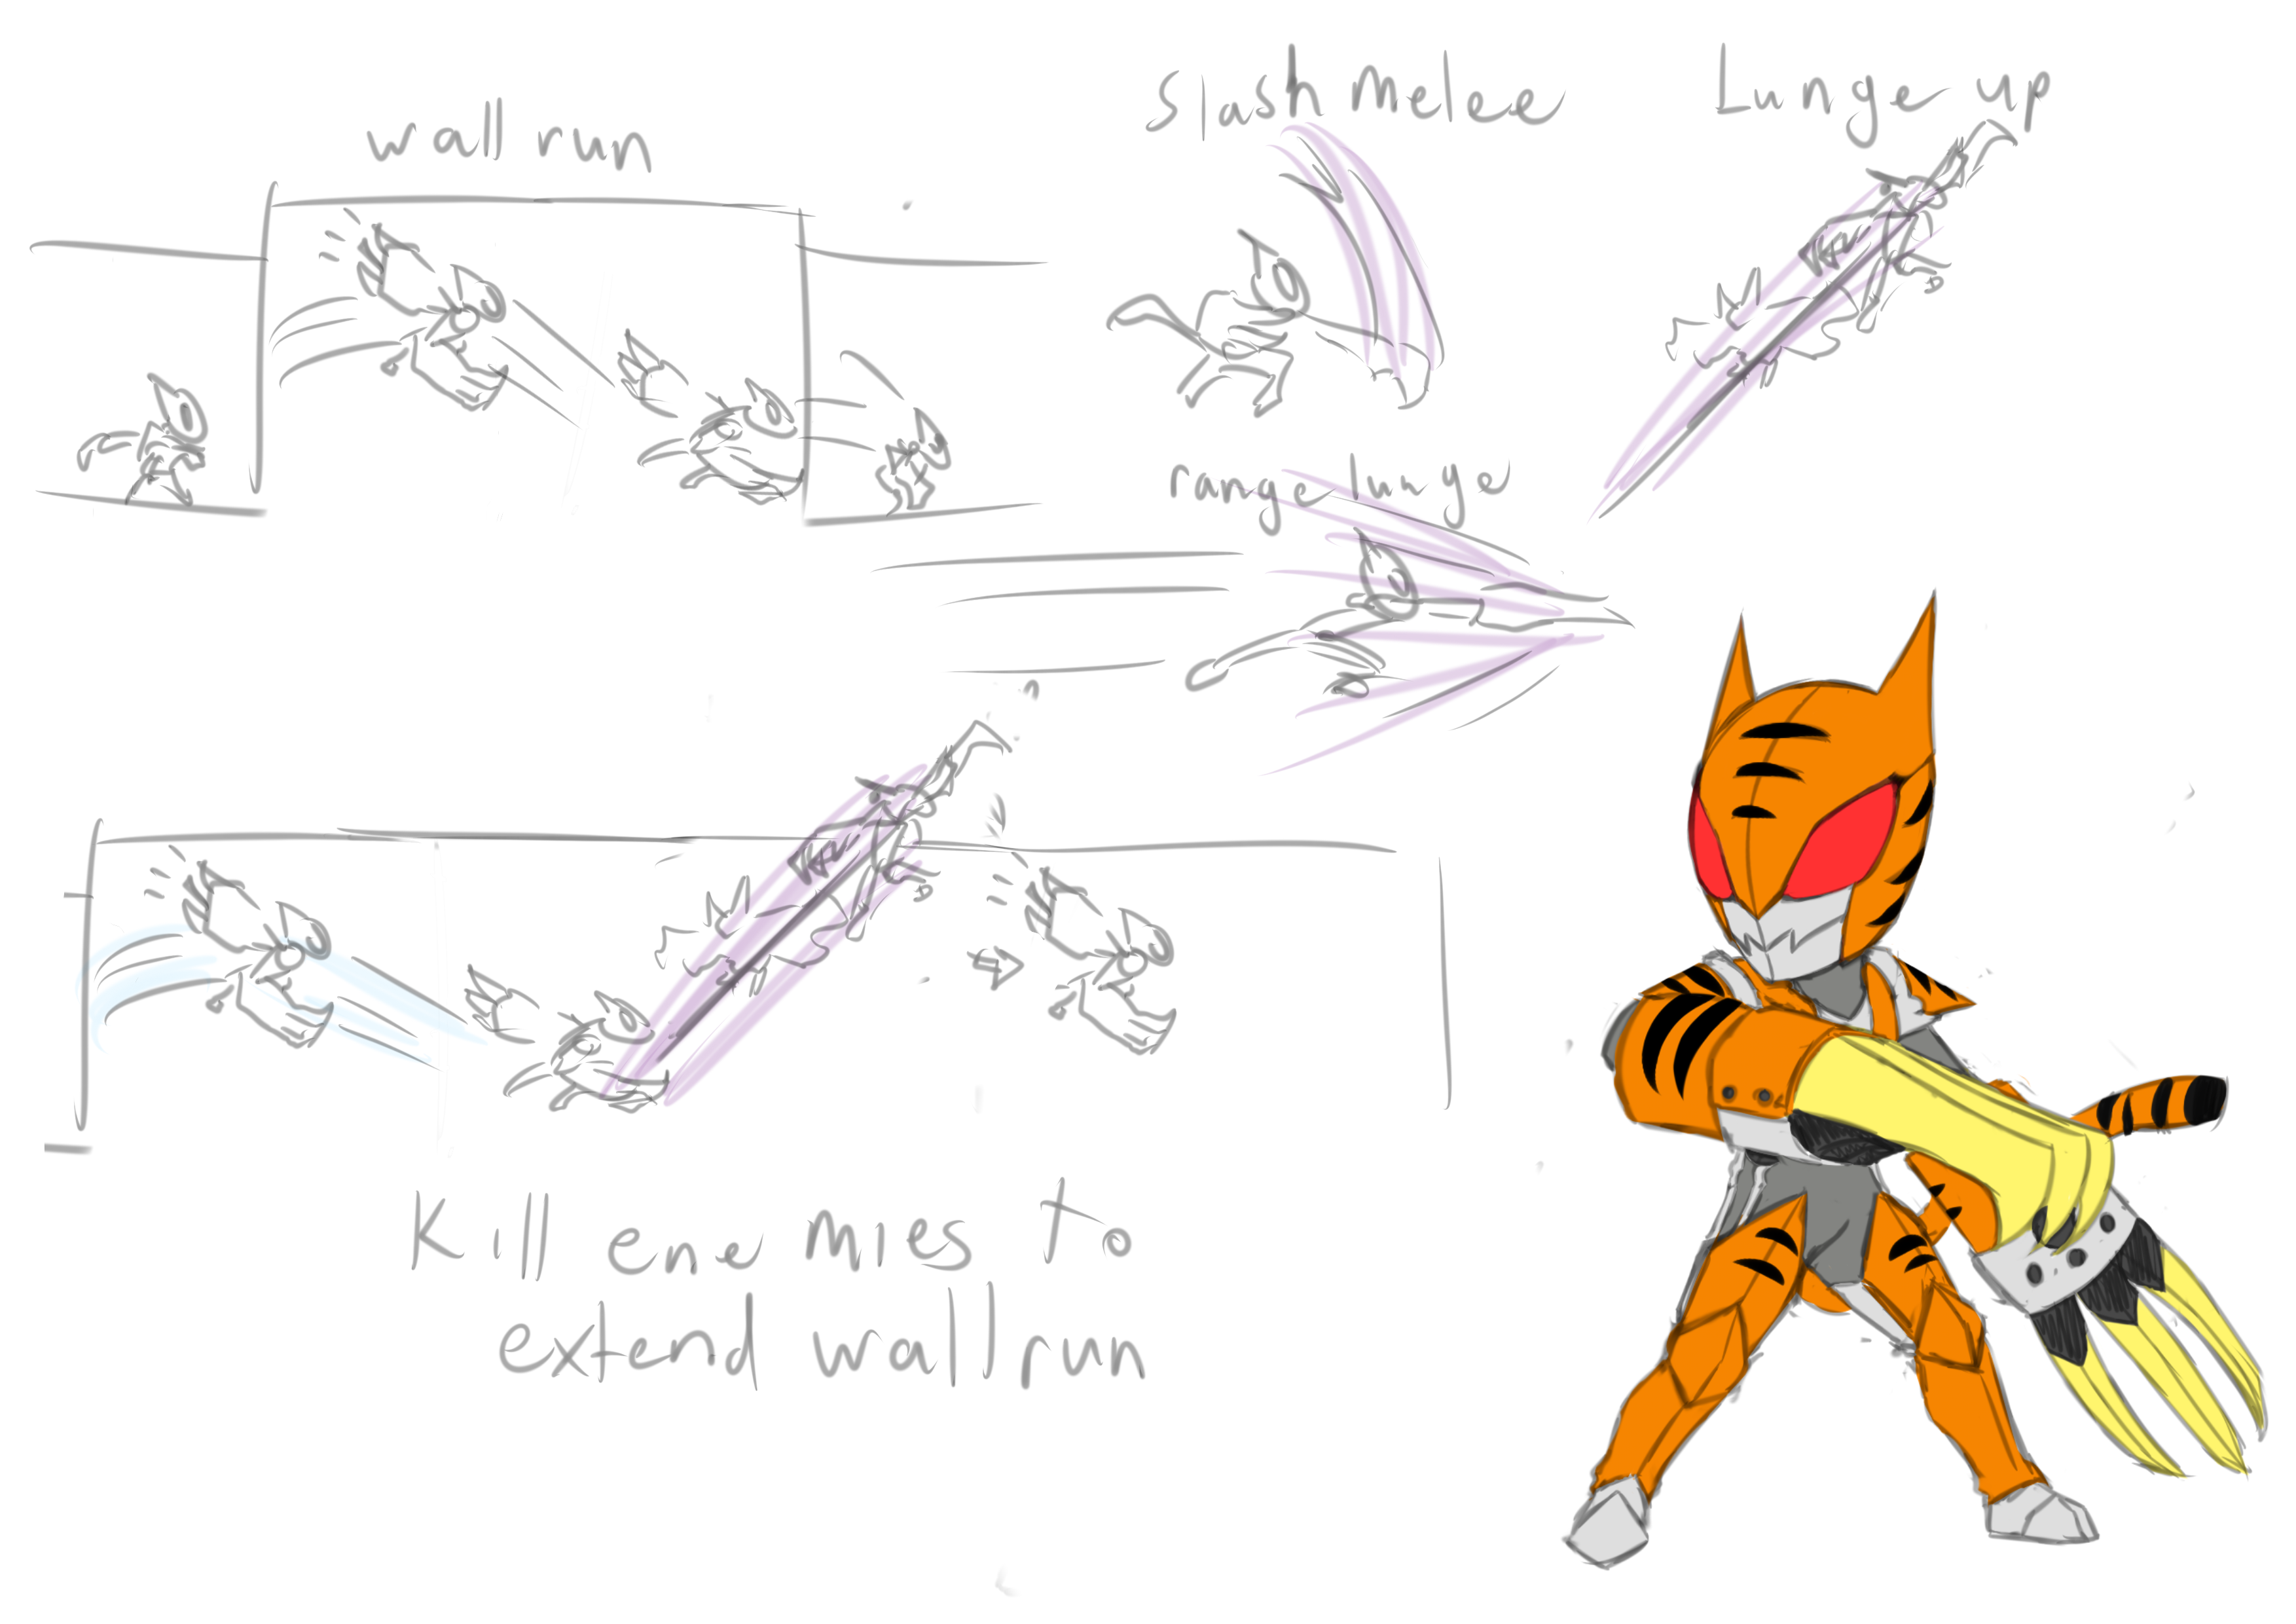 wall run
Slash Melee
Lunge up
range lunge
Kill enemies to
extend wall run